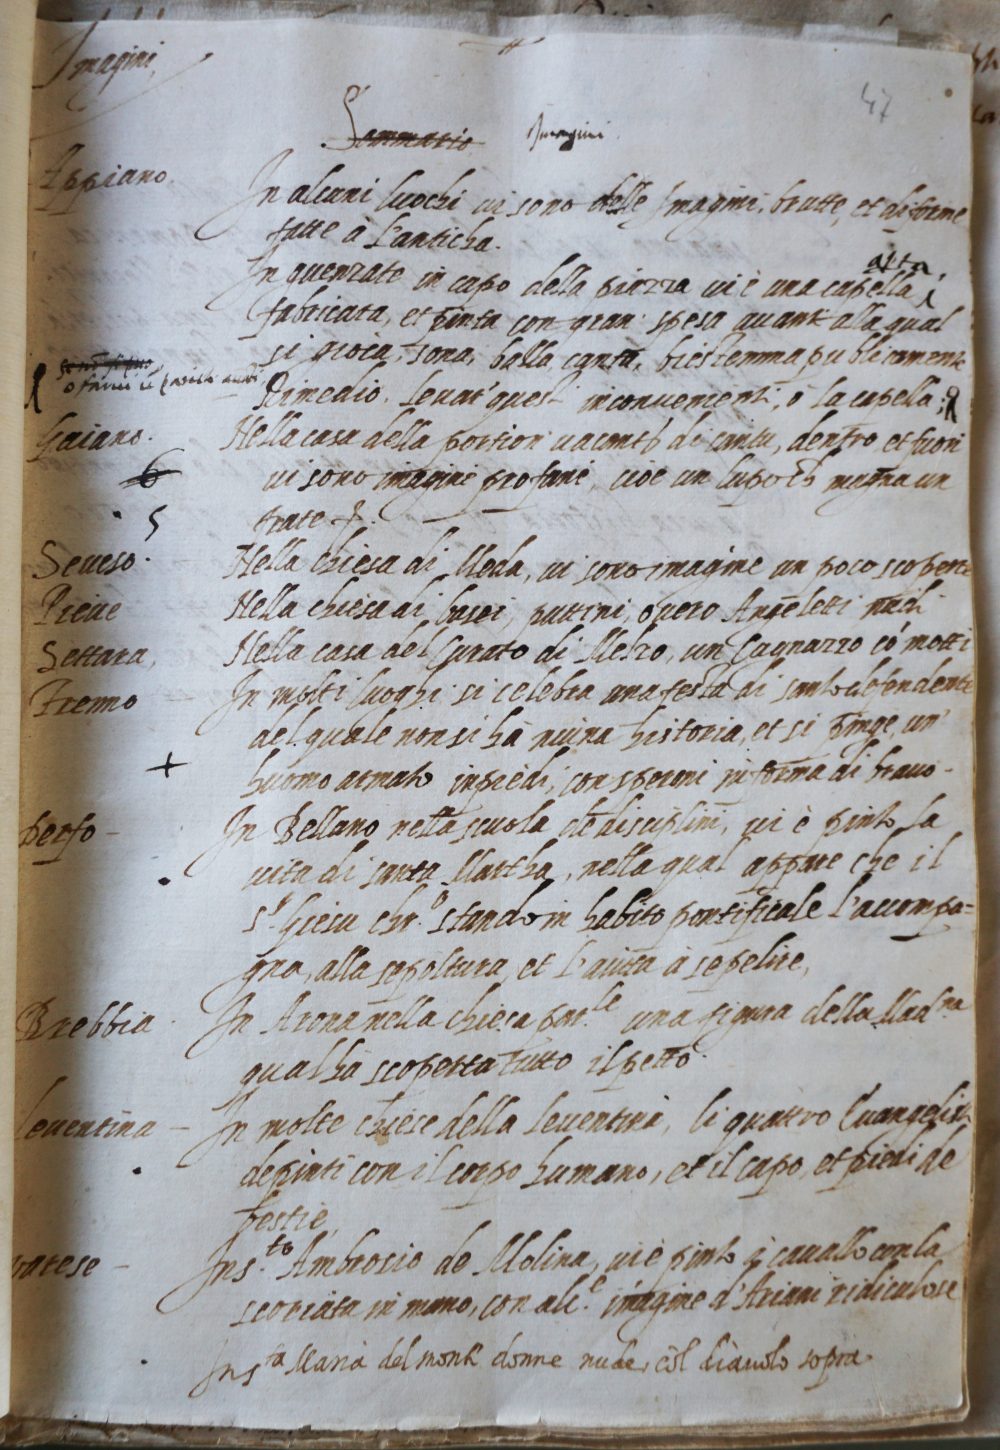 Imagini,
47
Sommario Imagini.
Appiano. In alcuni luochi vi sono delle Imagini, brutte, et diforme
fatte à l'anticha.
In quenzate in capo della piazza vi è una capella aperta,
fabricata, et pinta con gran spesa avanti alla qual
si gioca, sona, balla, canta, biestemma publicamente
Rimedio. Levar' questi inconvenienti, ò la capella;
Gaiano. Nella casa della portion vacante di cantu, dentro, et fuori
6 vi sono imagine profane, cioe un lupo ch magna un
5 frate
Seveso. Nella chiesa di Meda, vi sono imagine un poco scoperte
Pieve Nella chiesa di, puttini, overo Angeletti nudi
Settara, Nella casa del Curato di, un Cagnazzo cò motti
Trenno In molti luoghi si celebra una festa di santo defendente
del quale non si hà niuna historia, et si pinge, un'
+ huomo armato in piedi, con speroni in forma di bravo.
Perfo In Bellano nella scuola de disciplini, vi è pinto la
vita di santa Martha, nella qual appare che il
s.r Giesu Chr.o stando in habito pontificale l'accompa=
gna, alla sepoltura, et l'aiuta à sepelire,
Brebbia. In Arona nella chiesa par.le una figura della Mad.na
qual hà scoperta tutto il petto.
Leventina In molte chiese della leventina, li quattro Evangelisti
depinti con il corpo humano, et il capo, et piedi de
bestie,
varese In s.to Ambrosio de Molina, vi è pinto à cavallo con la
scoriata in mano, con alc.e imagine d'Ariani ridiculose
In s.ta Maria del monte donne nude, còl diavolo sopra.